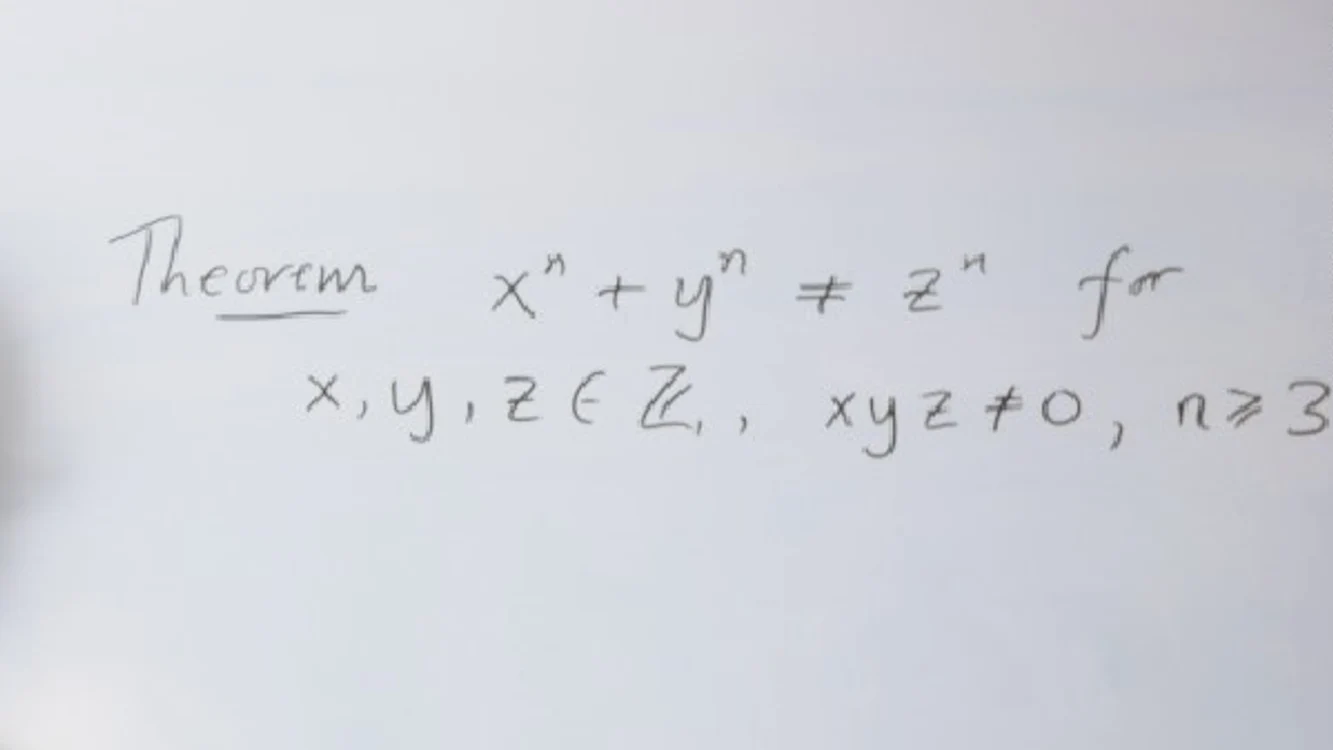 Theorem xⁿ + yⁿ ≠ zⁿ for
x, y, z ∈ ℤ, , xyz ≠ 0, n ⩾ 3